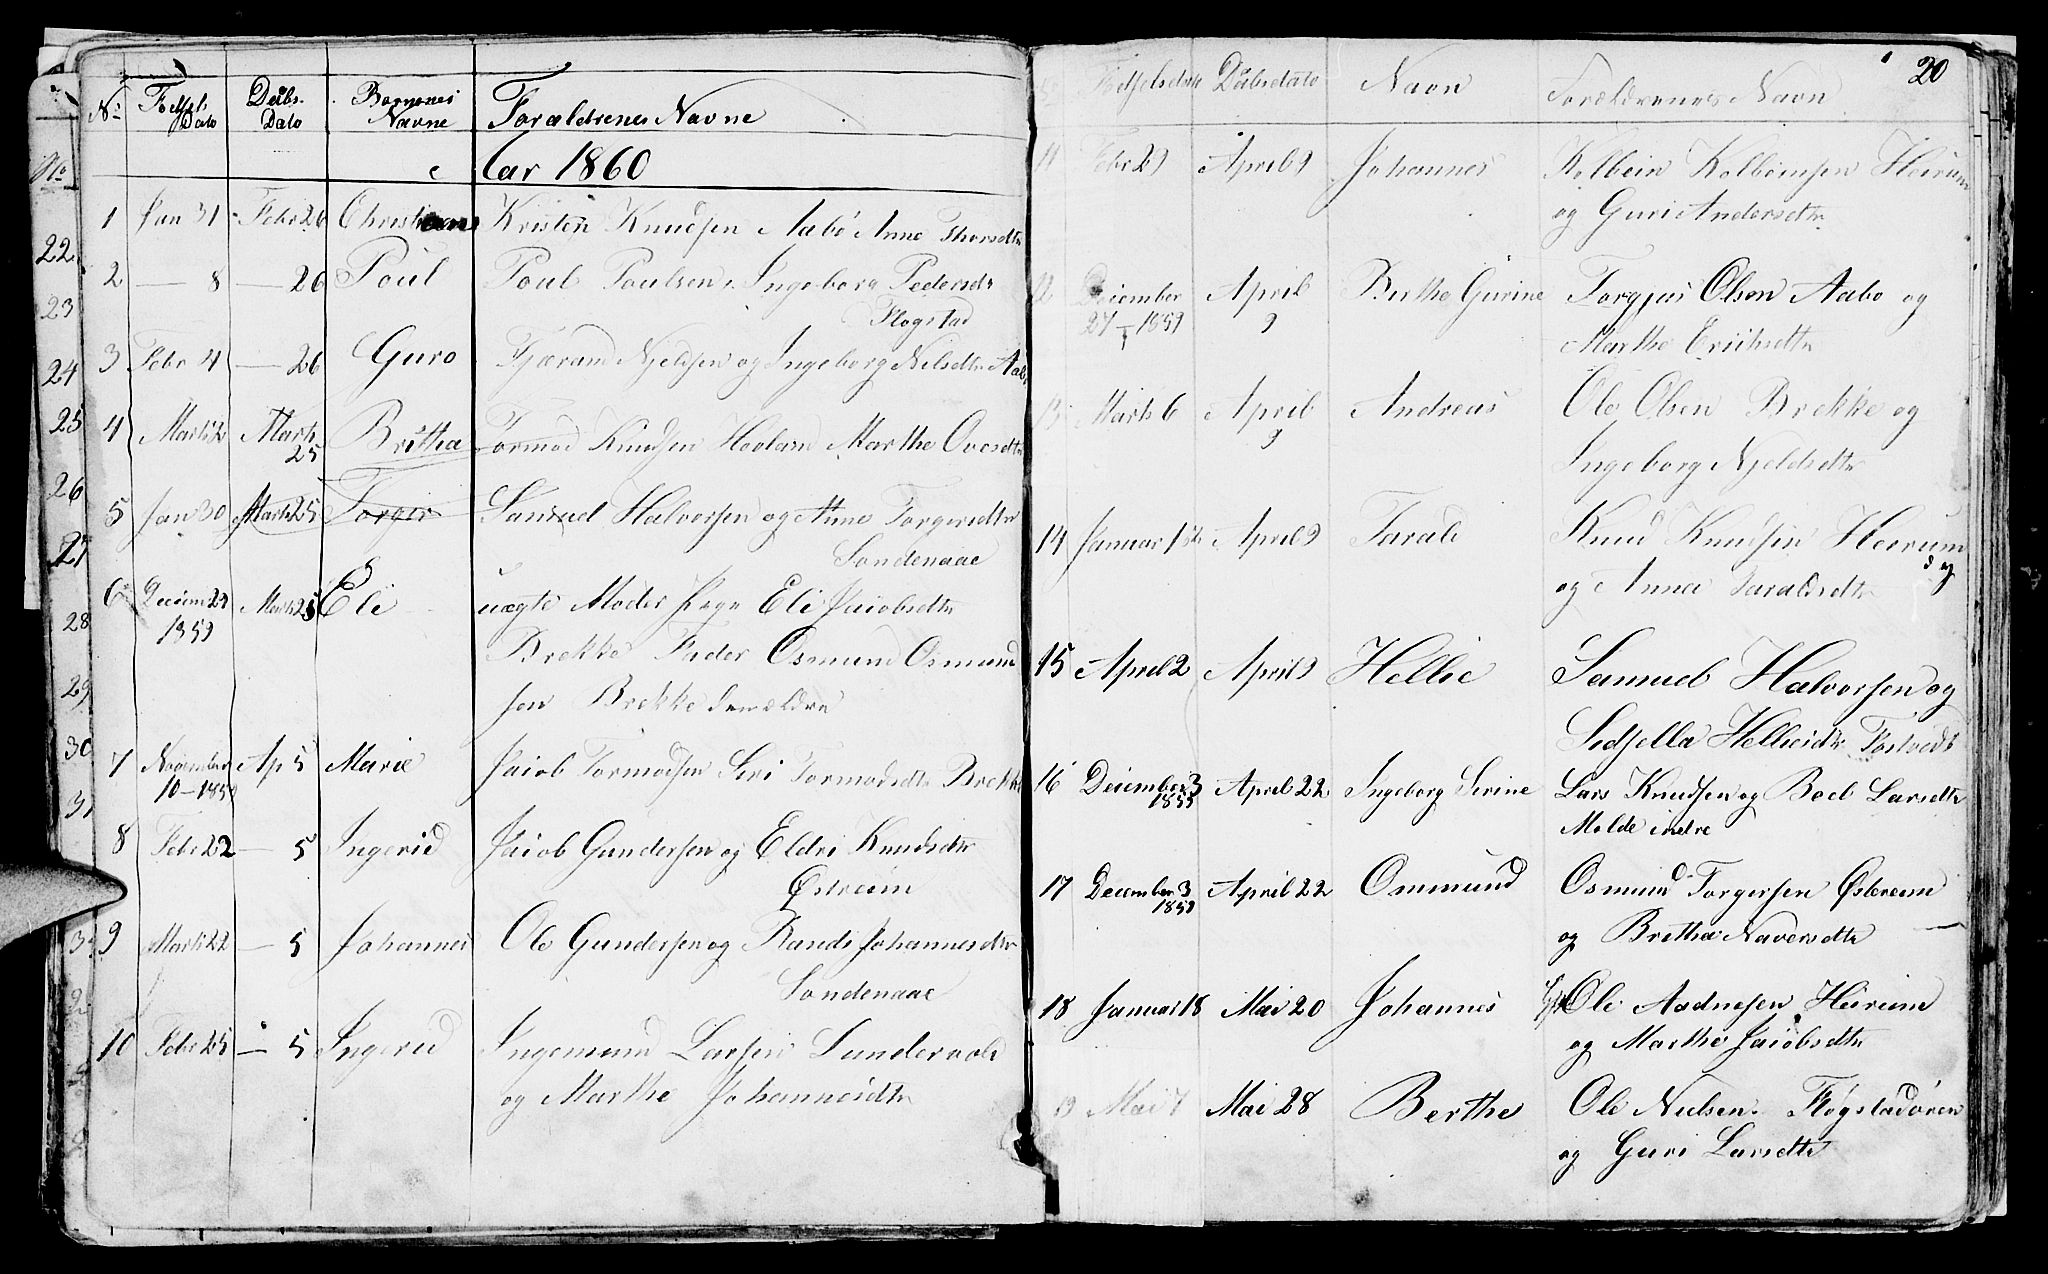 No Fødsels Dato Daabs Dato Børnenes Navne Forældrenes Navne
Aar 1860
1 Jan 31 Febr 26 Christian Kristen Knudsen Aabø Anne Thorsdtr
2 — 8 — 26 Poul Poul Poulsen, Ingeborg Pedersdtr
Flogstad
3 Febr 4 — 26 Guro Tjærand Njeldsen og Ingeborg Nilsdtr Aabø
4 Marts 2 Marts 25 Britha Tormod Knudsen Hovland Marthe Ovesdtr
5 Jan 30 Marts 25 Torger Samuel Halvorsen og Anne Torgersdtr
Søndenaae
6 Decem 29 1859 Marts 25 Eli uægte Moder Pige Eli Jacobsdtr
Brekke Fader Osmund Osmund
sen Brekke
7 November 10 – 1859 Ap 5 Marie Jacob Tormodsen Siri Tormodsdtr Brekke
8 Febr 22 — 5 Ingerid Jacob Gundersen og Eldri Knudsdtr
Østreim
9 Marts 22 — 5 Johannes Ole Gundersen og Randi Johannesdtr
Søndenaae
10 Febr 25 — 5 Ingerid Ingemund Larsen Sundervold
og Marthe Johannesdtr
No
22
23
24
25
26
27
28
29
30
31
20
Fødselsdato Daabsdato Navn Forældrenes Navn
11 Febr 29 April 9 Johannes Kolbein Kolbeinsen Heirum
og Guri Andersdtr
12 December 27 – 1859 April 9 Berthe Gurine Torgjus Olsen Aabø og
Marthe Erichsdtr
13 Marts 6 April 9 Andreas Ole Olsen Brekke og
Ingeborg Njeldsdtr
14 Januar 1st April 9 Tarald Knud Knudsen Heirum
og Anna Taraldsdtr
15 April 2 April 9 Hellie Samuel Halvorsen og
Sidsella Helliesdtr Tostvedt
16 December 3 1855 April 22 Ingeborg Serine Lars Knudsen og Boel Larsdtr
Molde indre
17 December 3 1859 April 22 Ommund Osmund Torgersen Østereim
og Bretha Naversdtr
18 Januar 18 Mai 20 Johannes Ole Aadnesen Heirum
og Marthe Jacobsdtr
19 Mai 7 Mai 28 Berthe Ole Nielsen Fløgstadøren
og Guri Larsdtr